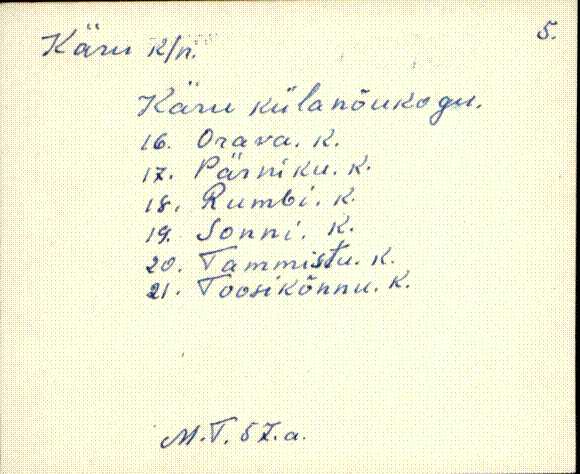 Käru k/n.
5.
Käru külanõukogu.
16. Orava. k.
17. Pärniku. k.
18. Rumbi. k.
19. Sonni. k.
20. Tammistu. k.
21. Toosikõnnu. k.
M.T. 57.a.